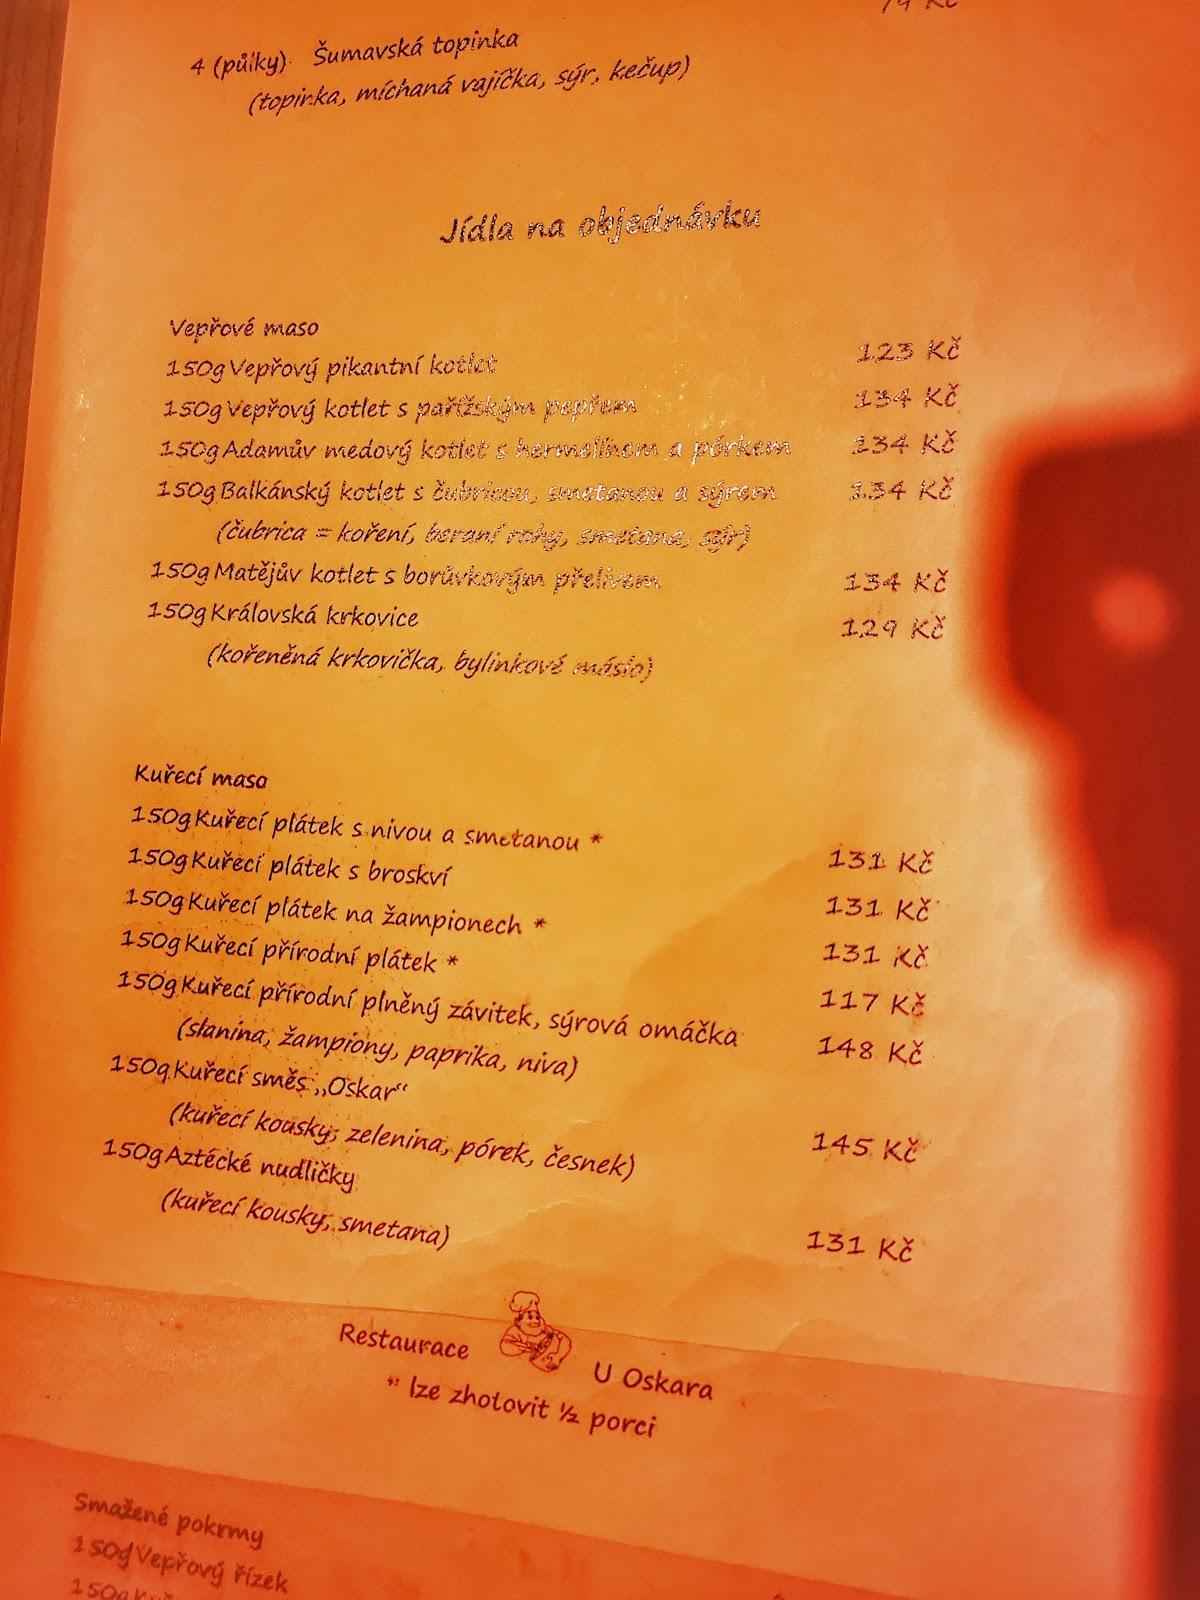 4 (půlky) Šumavská topinka
(topinka, míchaná vajíčka, sýr, kečup)
Jídla na objednávku
Vepřové maso
150g Vepřový pikantní kotlet 123 Kč
150g Vepřový kotlet s pařížským pepřem 134 Kč
150g Adamův medový kotlet s hermelínem a pórkem 134 Kč
150g Balkánský kotlet s čubricou, smetanou a sýrem 134 Kč
(čubrica = koření, beraní rohy, smetana, sýr)
150g Matějův kotlet s borůvkovým přelivem 134 Kč
150g Královská krkovice 129 Kč
(kořeněná krkovička, bylinkové máslo)
Kuřecí maso
150g Kuřecí plátek s nivou a smetanou * 131 Kč
150g Kuřecí plátek s broskví 131 Kč
150g Kuřecí plátek na žampionech * 131 Kč
150g Kuřecí přírodní plátek * 117 Kč
150g Kuřecí přírodní plněný závitek, sýrová omáčka 148 Kč
(slanina, žampiony, paprika, niva)
150g Kuřecí směs „Oskar“ 145 Kč
(kuřecí kousky, zelenina, pórek, česnek)
150g Aztécké nudličky 131 Kč
(kuřecí kousky, smetana)
Restaurace U Oskara
* lze zhotovit ½ porci
Smažené pokrmy
150g Vepřový řízek
150g